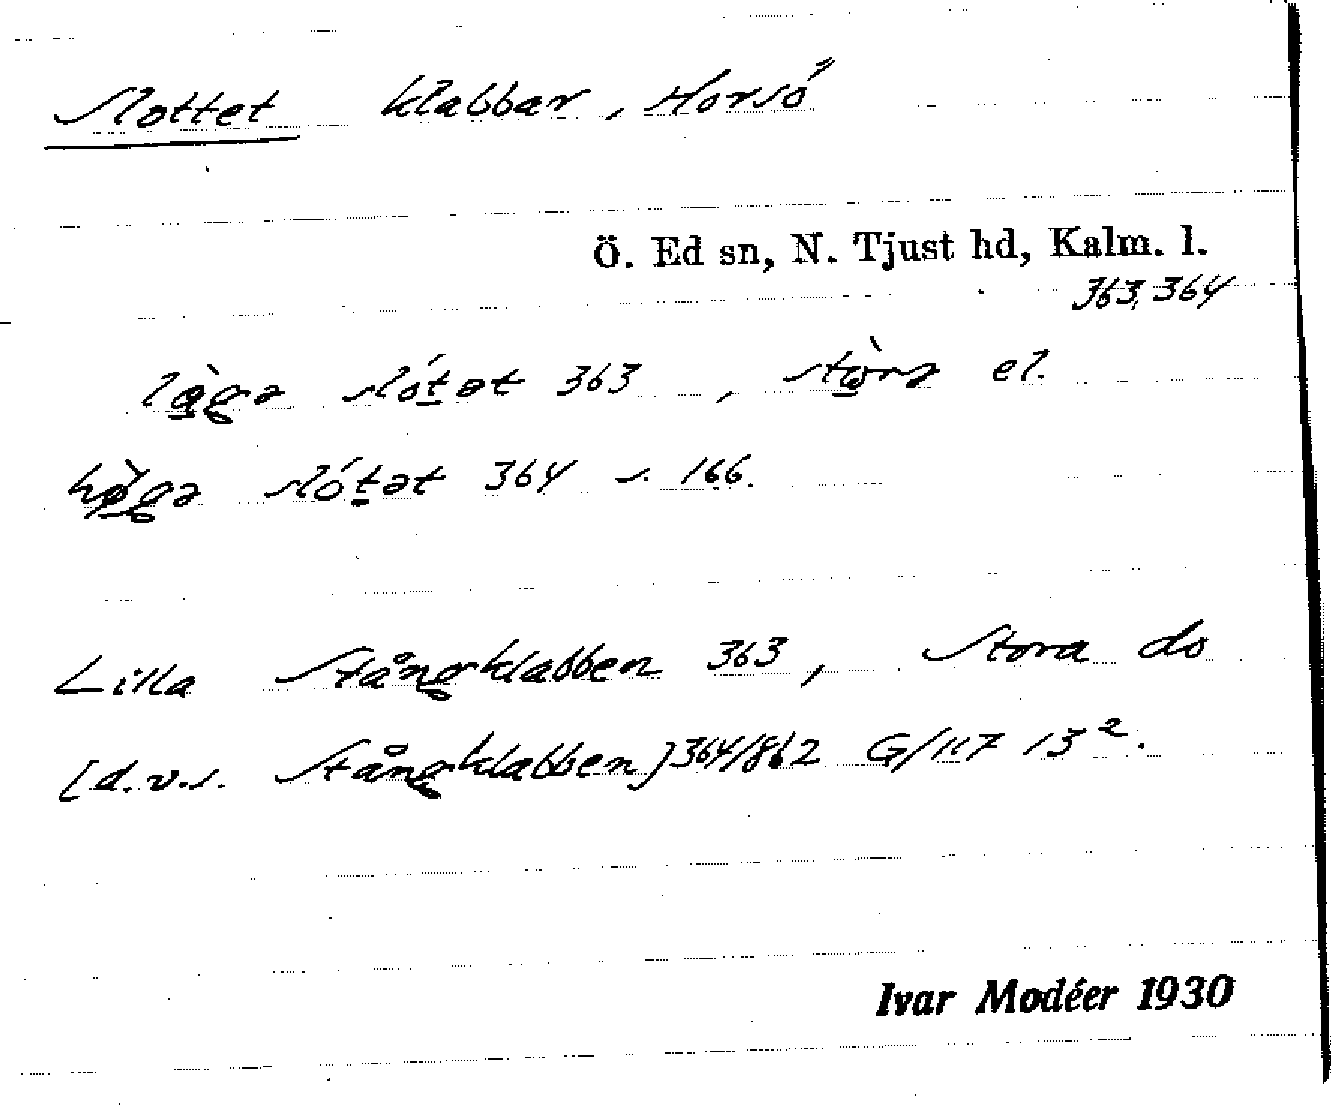 Slottet klabbar, Horsö
Ö. Ed sn, N. Tjust hd, Kalm. l.
363, 364
lå̀gə slótət 363, stò̀rə el.
hø̀gə slótət 364 s. 166.
Lilla Stångklabben 363, Stora do
[d.v.s. Stångklabben] 364/862 G/117 13².
Ivar Modéer 1930